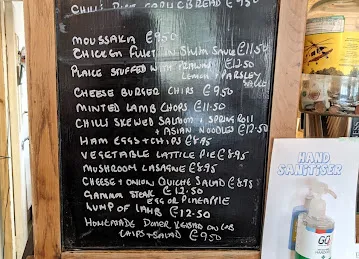 CHILLI RICE CORNBREAD £9.50
MOUSSAKA £9.50
CHICKEN FILLET IN SHLM SAUCE £11.50
PLAICE STUFFED WITH PRAWNS £12.50
LEMON + PARSLEY SAUCE
CHEESE BURGER CHIPS £9.50
MINTED LAMB CHOPS £11.50
CHILLI SKEWED SALMON + SPRING ROLL
+ ASIAN NOODLES £12.50
HAM EGGS + CHIPS £8.95
VEGETABLE LATTICE PIE £8.95
MUSHROOM LASAGNE £8.95
CHEESE + ONION QUICHE SALAD £8.95
GAMMON STEAK £12.50
EGG OR PINEAPPLE
LUMP OF LAMB £12.50
HOMEMADE DONER KEBAB ON COB
CHIPS + SALAD £9.50
HAND
SANITISER